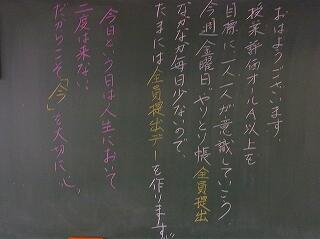 おはようございます。
授業評価オールA以上を
目標に一人一人が意識していこう
今週金曜日”やりとり帳全員提出
なかなか毎日少ないので、
たまには全員提出デーを作ります!!
今日という日は人生において
二度は来ない。
だからこそ「今」を大切に。